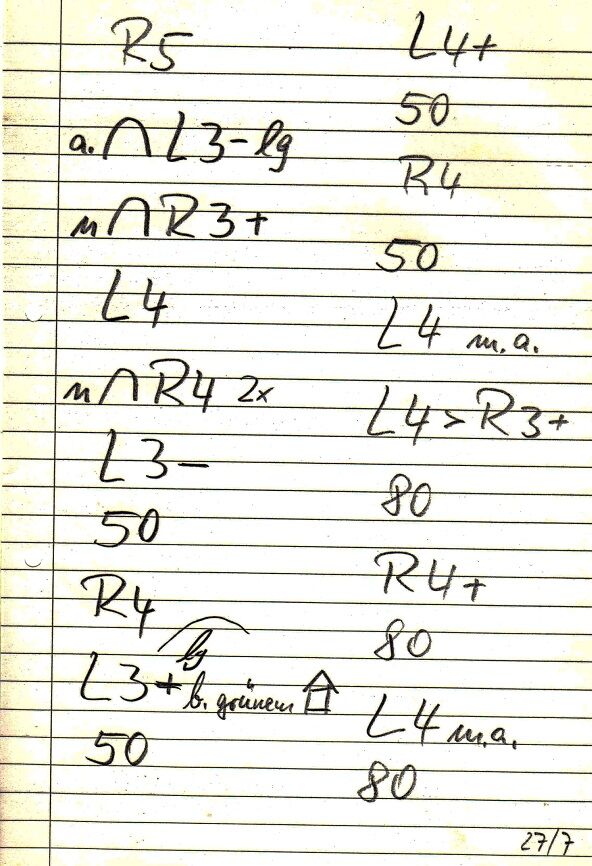 R5
a. ∩ L3- lg
n ∩ R3+
L4
n ∩ R4 2x
L3-
50
R4
lg
L3+ b. grünem
50
L4+
50
R4
50
L4 m.a.
L4 > R3+
80
R4+
80
L4 m.a.
80
27/7